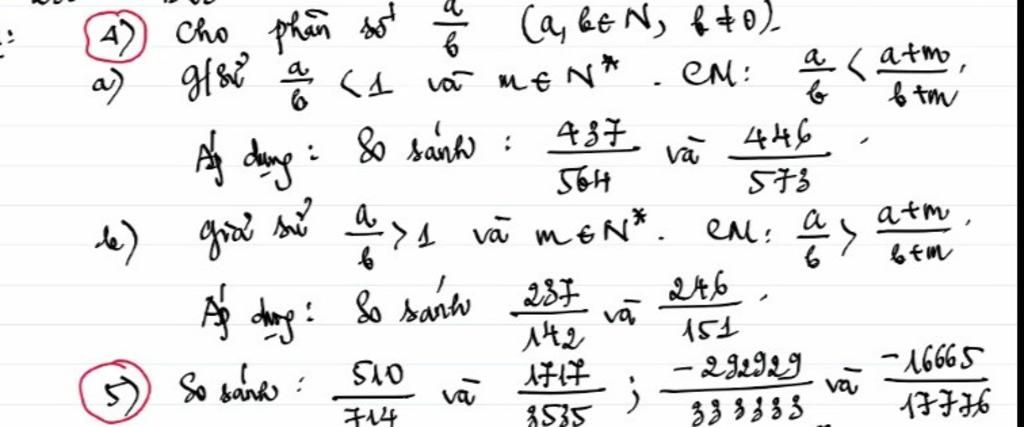 4) Cho phân số a/b (a, b ∈ N, b ≠ 0).
a) g/sử a/b < 1 và m ∈ N*. CM: a/b < (a+m)/(b+m).
Áp dụng: So sánh: 437/564 và 446/573.
b) giả sử a/b > 1 và m ∈ N*. CM: a/b > (a+m)/(b+m).
Áp dụng: So sánh 237/142 và 246/151.
5) So sánh: 510/714 và 1717/3535; -292929/333333 và -16665/17776